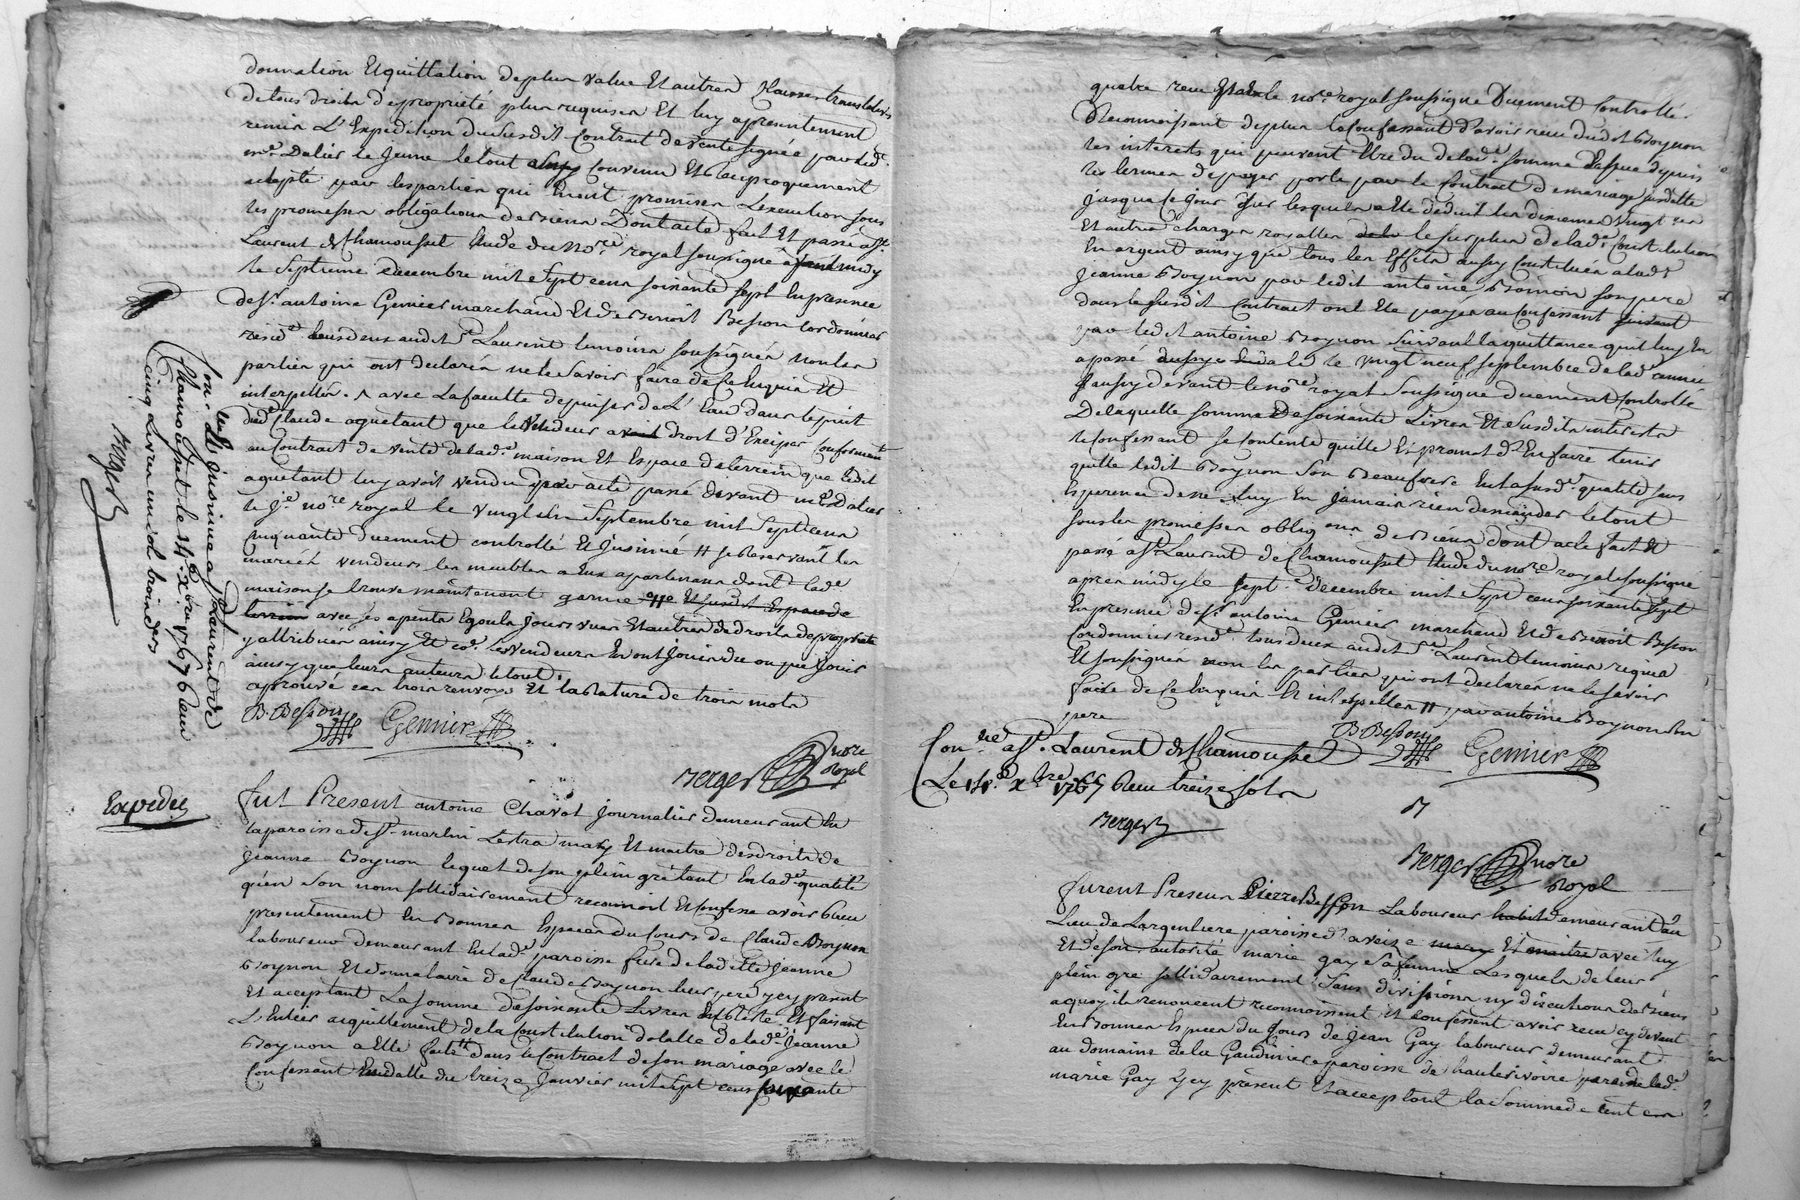 donnation Et quittation de plus value Et autres Clauses translatives
de tous droits de propriété plus requises Et luy a presentement
remis L'Expedition du susdit Contrat de vente signée par led.
me. Dalier le jeune le tout Convenu Et Reciproquement
accepté par les parties qui En ont promises L'execution sous
les promesses obligations de Biens Dont acte fait Et passé a St.
Laurent de Chamousset Etude du No.re royal soussigné
le Septieme decembre mil Sept cens soixante Sept En presence
de Sr. antoine Genier marchand Et de Benoit Besson Cordonnier
resid. tous deux audit St. Laurent temoins soussignés non les
parties qui ont declarés ne le savoir faire de ce Enquis Et
interpellés. avec la faculté de puiser de L'Eau dans le puit
dud. Claude aquetant que le Vendeur avoit droit d'Exciper Conformement
au Contrat de vente de lad. maison Et Espace de terrein que ledit
aquetant luy avoit vendu par acte passé devant me. Dalier
le Je. no.re royal le vingt Septembre mil Sept cens
cinquante duement controllé Et insinué se Reservant les
mariés vendeurs les meubles a Eux apartenans dont lad.
maison se trouve maintenant garnie Et susdit Espace de
terrein avec ses apents Egouts jours vues Et autres de droits de propriété
y attribués ainsy Et co. les Vendeurs En ont joui du ou pu jouir
ainsy que leurs auteurs le tout.
aprouvé ces trois renvoys Et la Rature de trois mots
B. Besson Genier
Berger no.re Royal
Con. Et insinué a St. Laurent de
Chamousset le 14e. Xbre 1767 Reçu
cinq Livres un sol trois drs
Berger
Expediee
fut Present antoine Chavot journalier demeurant En
la paroisse de St. martin Lestra mary Et maitre des droits de
jeanne Boynon lequel de son plein gré tant En lad. qualité
qu'en son nom sollidairement reconnoit Et Confesse avoir Reçu
presentement En Bonnes Especes du Cours de Claude Boynon
laboureur demeurant En lad. paroisse frere de la ditte jeanne
Boynon Et donnataire de Claude Boynon leur pere y cy present
Et acceptant La somme de soixante Livres En Reste Et faisant
L'Entier acquittement de la Constitution dotalle de lad. jeanne
Boynon a Elle faite dans le Contract de son mariage avec le
Confessant En datte du treize Janvier mil Sept cens soixante
quatre reçu par le no.re royal soussigné Duement Controllé.
Reconnoissant de plus le Confessant d'avoir reçu dudit Boynon
les interets qui peuvent Etre du de lad. somme depuis
les termes de payer porté par le Contract de mariage susdatté
jusqua ce jour Sur lesquels a Eté deduit les dixiemes Vingt.es
Et autres charges royalles le surplus de lad. Constitution
En argent ainsy que tous les Effets aussy Constitués a lad.
jeanne Boynon par ledit antoine Boynon son pere
dans le susdit Contract ont Eté payés au Confessant
par ledit antoine Boynon suivant la quittance quil luy En
a passé le vingt neuf septembre de lad. année
aussy devant le no.re royal soussigné duement Controllé
De laquelle somme de soixante Livres Et susdits interets
le Confessant se contente quitte Et promet d'En faire tenir
quitte ledit Boynon son Beaufrere En la susd. qualité sans
Esperence de ne luy En jamais rien demander le tout
sous les promesses oblig.ons de Biens dont acte fait Et
passé a St. Laurent de Chamousset Etude du no.re royal soussigné
apres midy le Sept.e decembre mil Sept cens soixante Sept
En presence de Sr. antoine Genier marchand Et de Benoit Besson
Cordonnier resid. tous deux audit St. Laurent temoins requis
Et soussignés non les parties qui ont declarés ne le savoir
faire de ce Enquis Et interpellés par antoine Boynon son
pere
B. Besson Genier
Con. a St. Laurent de Chamousset
Le 14e. Xbre 1767 Reçu treize sols
Berger
Berger no.re
Royal
furent Presens Pierre Besson Laboureur demeurant au
Lieu de Largentiere paroisse d'aveize avec luy
Et de son autorité marie gay sa femme Lesquels de leur
plein gré sollidairement Sans divissions ny discutions de Biens
a quoy ils renoncent reconnoissent Et confessent avoir reçu cy devant
En Bonnes Especes du Cours de jean Gay laboureur demeurant
au domaine de la Gaudiniere paroisse de hauterivoire lad.
marie Gay y cy present Et acceptant la somme de cent